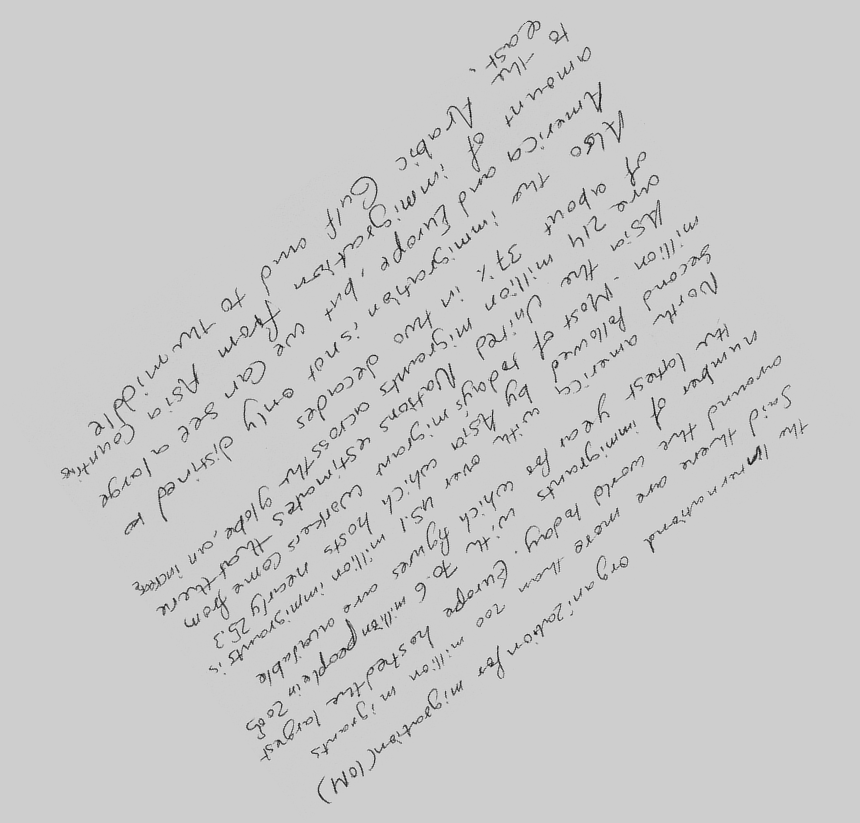 The Internationd organization for migration (IOM)
Said there are more than 200 million migrants
around the world today. Europe hosted the largest
number of immigrants with 70.6 million people in 2005
the latest year for which figures are available
North america with over 45.1 million immigrants is
Second followed by Asia which hosts nearly 25.3
million. Most of todays migrant workers come from
Asia the United Nations estimates that there
are 214 million migrants across the globe, an increase
of about 37% in two decades
Also the immigration is not only distined to
America and Europe, but we can see a large
amount of immigration from Asia Countries
to the Arabic Gulf and to the middle
east.